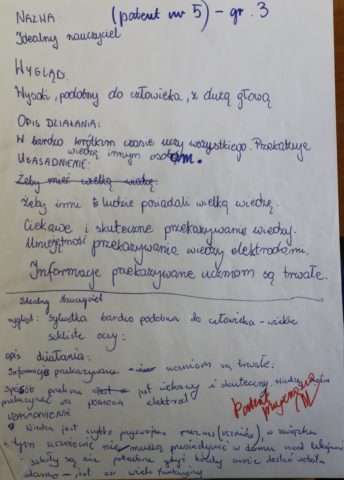 (patent nr 5) - gr. 3
NAZWA:
Idealny nauczyciel
WYGLĄD:
Wysoki, podobny do człowieka, z dużą głową.
OPIS DZIAŁANIA:
W bardzo krótkim czasie uczy wszystkiego. Przekazuje
wiedzę innym osobom.
UZASADNIENIE:
Żeby mieć wielką wiedzę.
Żeby inni ludzie posiadali wielką wiedzę.
Ciekawe i skuteczne przekazywanie wiedzy.
Umiejętność przekazywania wiedzy elektrodami.
Informacje przekazywane uczniom są trwałe.
Idealny nauczyciel
wygląd: Sylwetka bardzo podobna do człowieka - wielkie
szkliste oczy.
opis działania:
Informacje przekazywane uczniom są trwałe.
Sposób jest ciekawy i skuteczny.
za pomocą elektrod
UZASADNIENIE
Wiedza jest szybko przez, w związku
z tym uczniowie nie muszą przesiadywać w domu nad
szkoły są nie potrzebne gdyż każdy może dostać
- jest on wielofunkcyjny
Patent